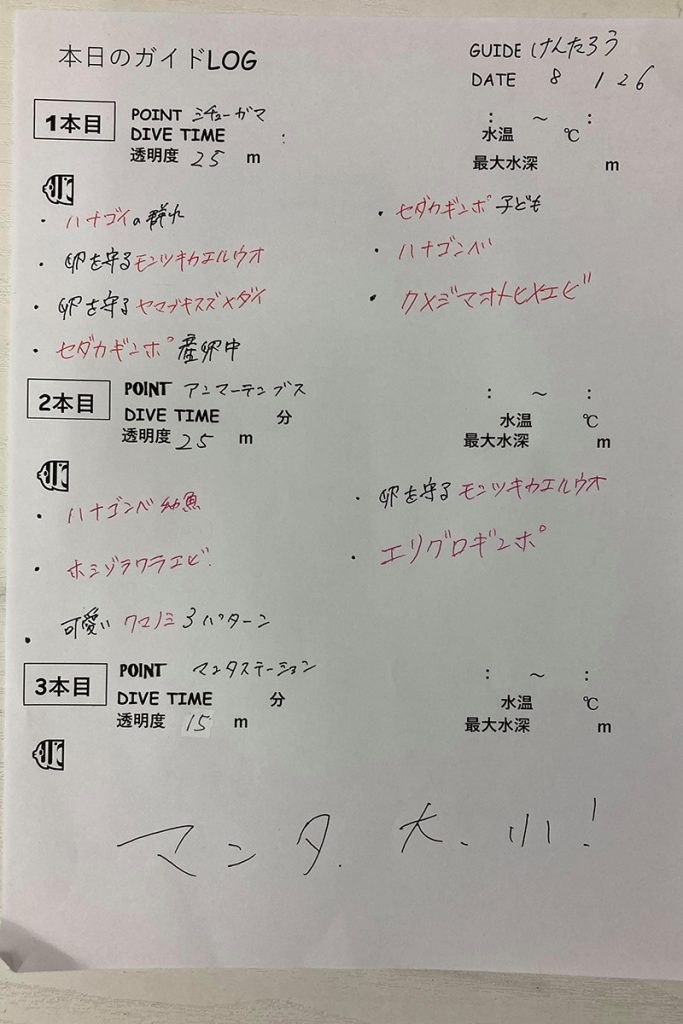 本日のガイドLOG
GUIDE けんたろう
DATE 8 / 26
1本目
POINT ミチューガマ
DIVE TIME :
透明度 25 m
: ～ :
水温 ℃
最大水深 m
・ハナゴイの群れ
・卵を守るモンツキカエルウオ
・卵を守るヤマブキスズメダイ
・セダカギンポ産卵中
・セダカギンポ子ども
・ハナゴンベ
・クメジマオトヒメエビ
2本目
POINT アンマーテンブス
DIVE TIME 分
透明度 25 m
: ～ :
水温 ℃
最大水深 m
・ハナゴンベ幼魚
・ホシゾラワラエビ
・可愛いクマノミ3パターン
・卵を守るモンツキカエルウオ
・エリグロギンポ
3本目
POINT マンタステーション
DIVE TIME 分
透明度 15 m
: ～ :
水温 ℃
最大水深 m
マンタ、大、小!